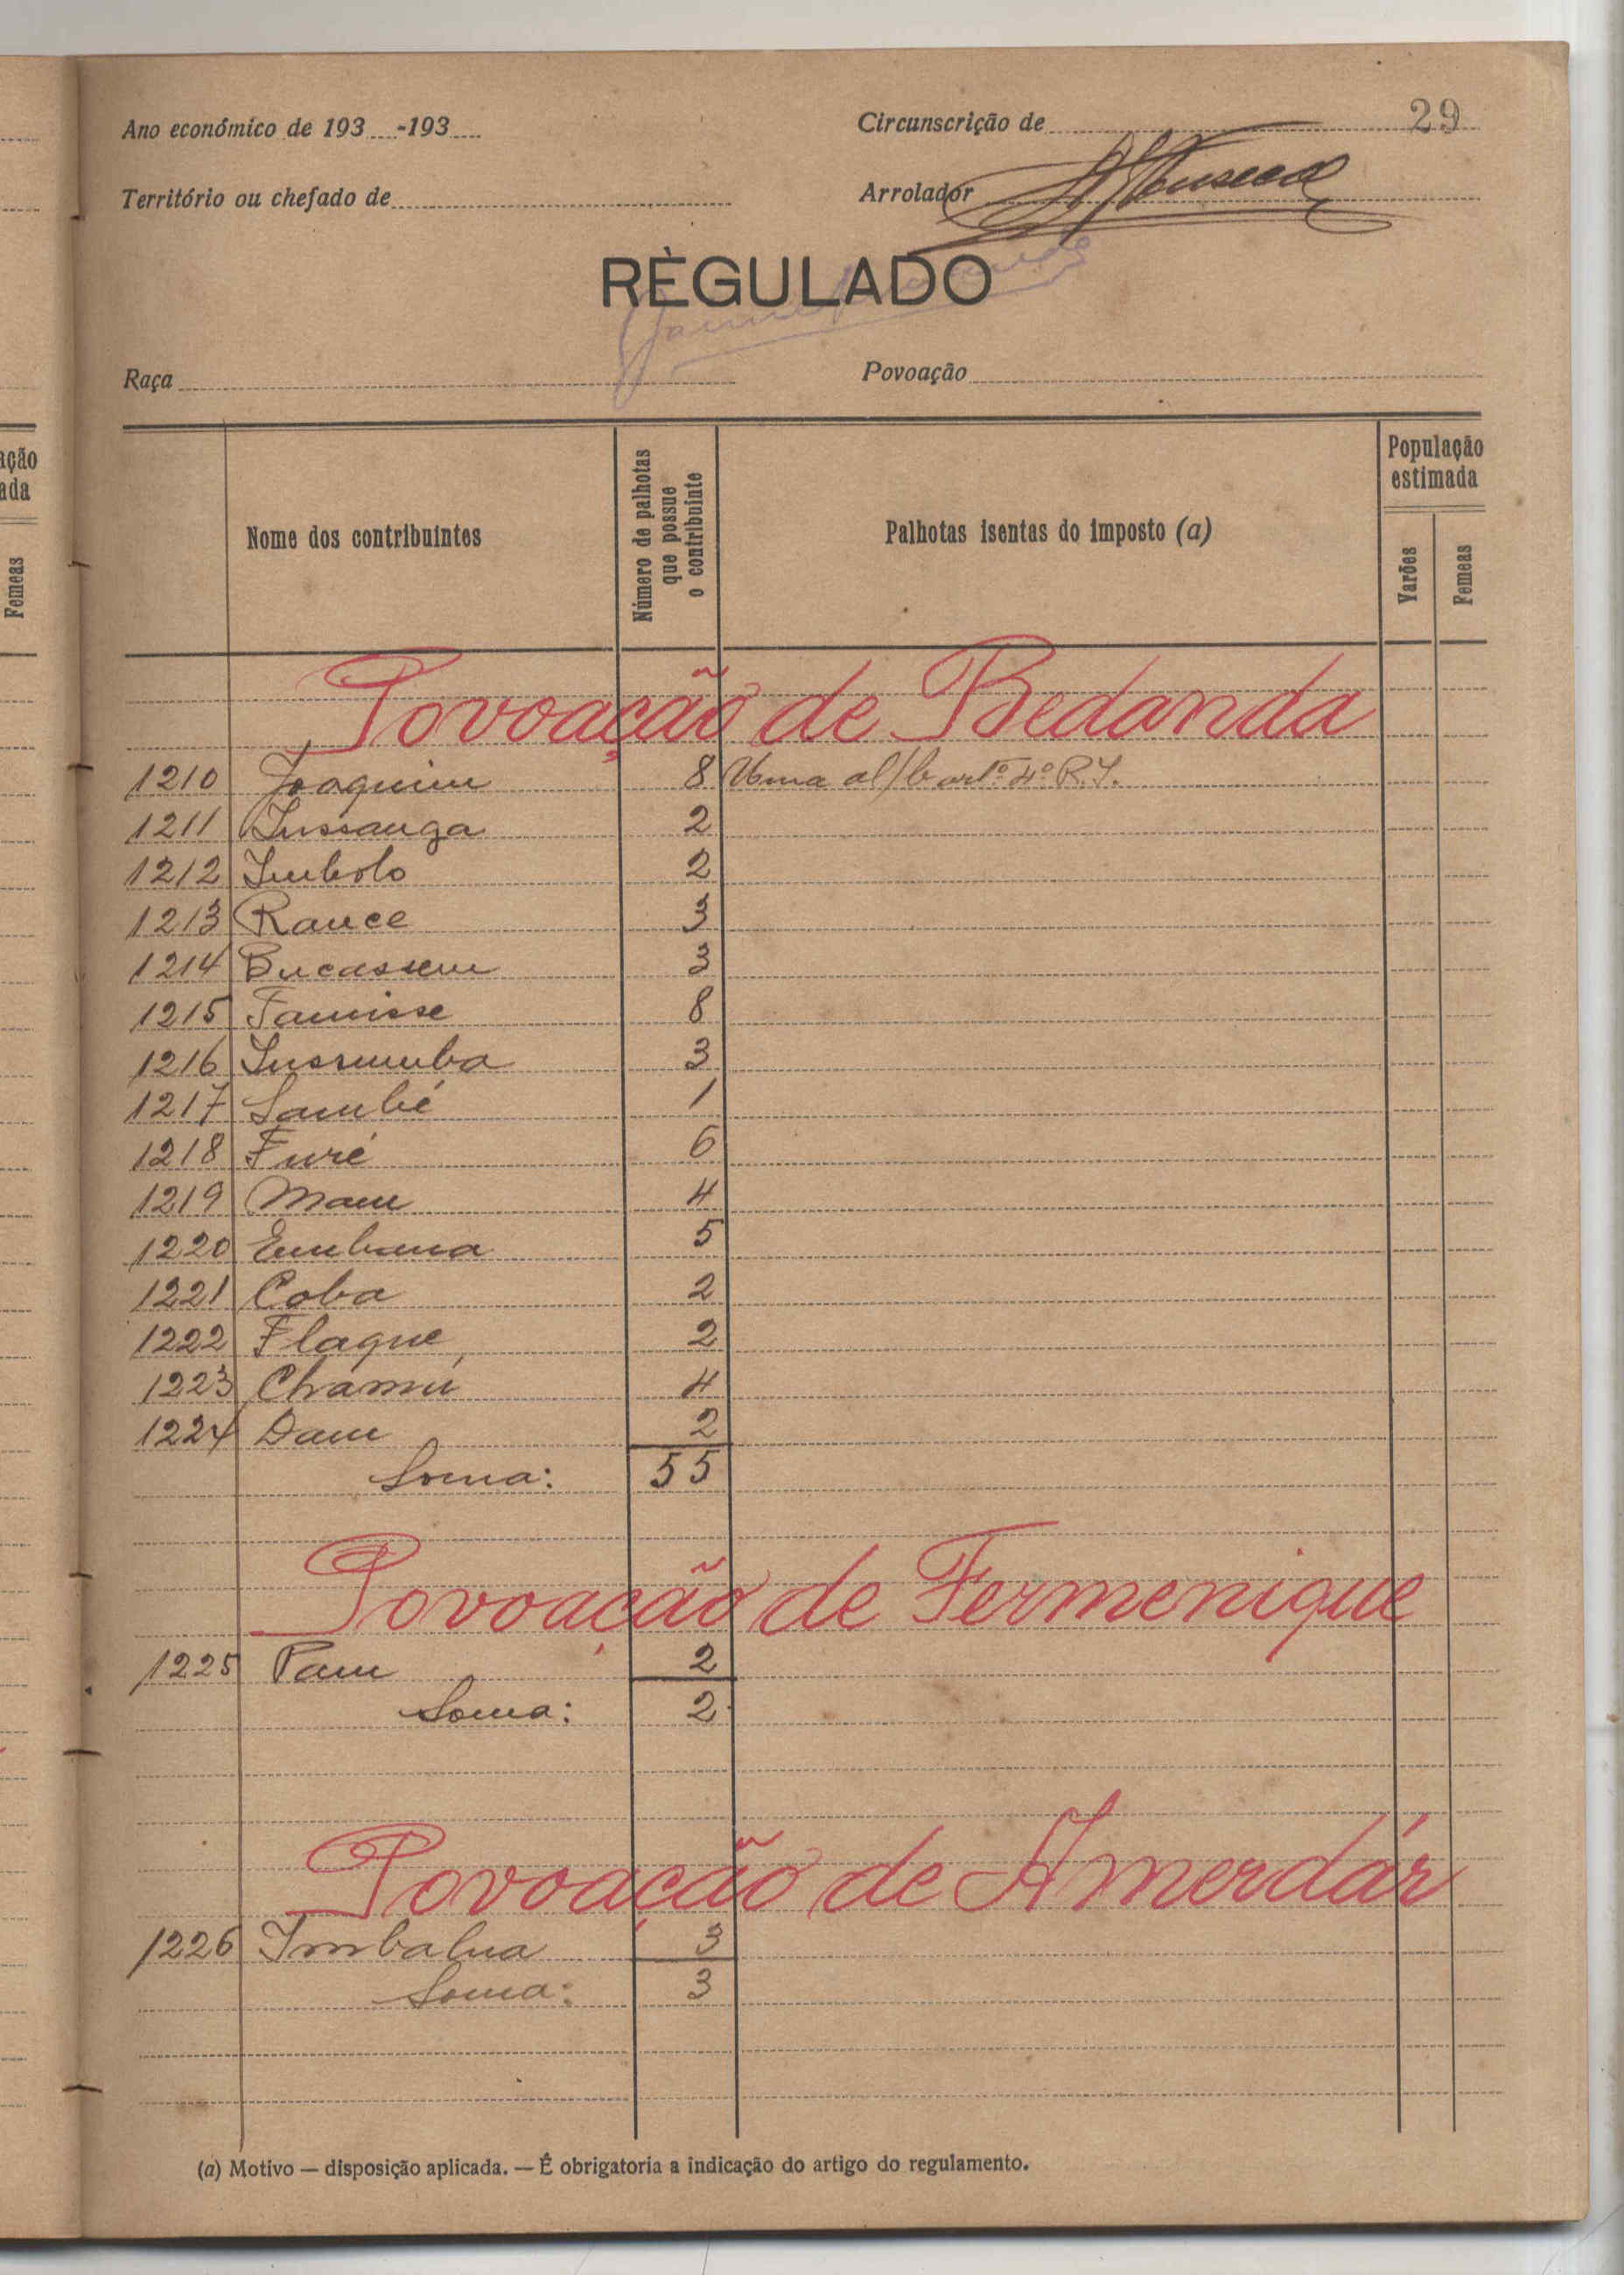 29
Ano económico de 193 -193
Circunscrição de
Território ou chefado de
Arrolador Fonseca
RÈGULADO
Raça
Povoação
Nome dos contribuintes
Número de palhotas que possue o contribuinte
Palhotas isentas do imposto (a)
População estimada
Varões
Femeas
Povoação de Bedanda
1210 Joaquim 8 Uma al/b artº 4º R.I.
1211 Inssanga 2
1212 Imbolo 2
1213 Rance 3
1214 Bucassem 3
1215 Famisse 8
1216 Inssumba 3
1217 Sambé 1
1218 Furé 6
1219 Mam 4
1220 Embana 5
1221 Coba 2
1222 Flaque 2
1223 Chamú 4
1224 Dam 2
Soma: 55
Povoação de Fermenique
1225 Pam 2
Soma: 2
Povoação de Amerdár
1226 Imbalna 3
Soma: 3
(a) Motivo — disposição aplicada. — É obrigatoria a indicação do artigo do regulamento.
ação
ada
Femeas